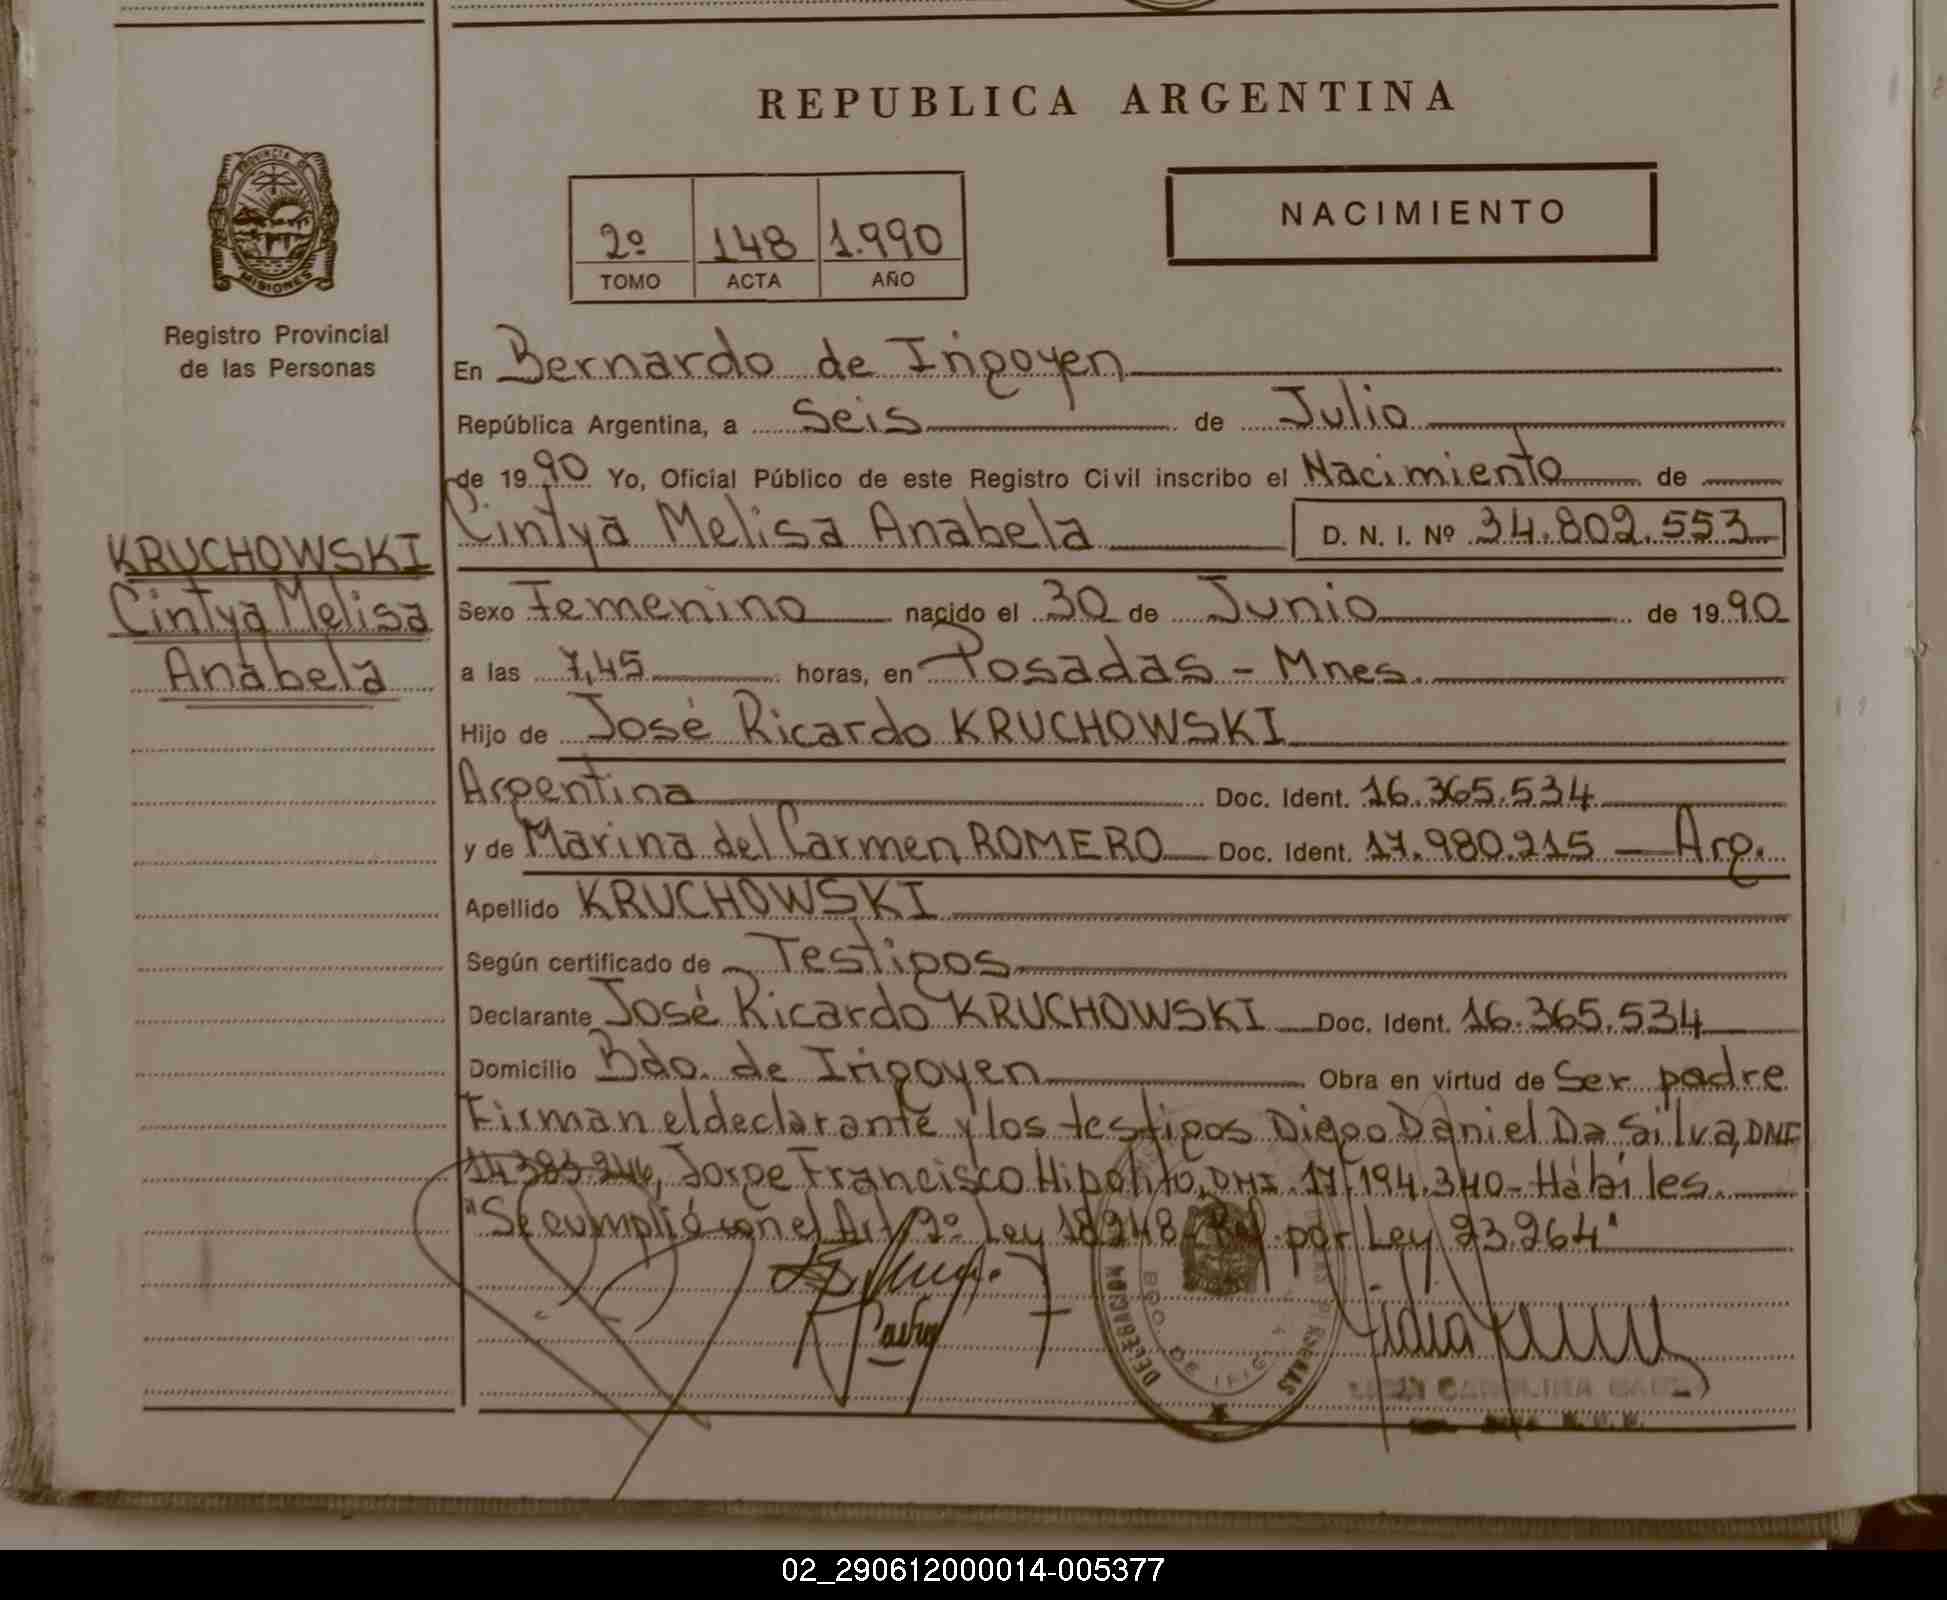 REPUBLICA ARGENTINA
PROVINCIA DE
MISIONES
Registro Provincial
de las Personas
2º 148 1.990
TOMO ACTA AÑO
NACIMIENTO
KRUCHOWSKI
Cintya Melisa
Anabela
En Bernardo de Irigoyen
República Argentina, a Seis de Julio
de 1990 Yo, Oficial Público de este Registro Civil inscribo el Nacimiento de
Cintya Melisa Anabela D. N. I. Nº 34.802.553
Sexo Femenino nacido el 30 de Junio de 1990
a las 7,45 horas, en Posadas - Mnes.
Hijo de José Ricardo KRUCHOWSKI
Argentina Doc. Ident. 16.365.534
y de Marina del Carmen ROMERO Doc. Ident. 17.980.215 Arg.
Apellido KRUCHOWSKI
Según certificado de Testigos
Declarante José Ricardo KRUCHOWSKI Doc. Ident. 16.365.534
Domicilio Bdo. de Irigoyen Obra en virtud de Ser padre
Firman el declarante y los testigos Diego Daniel Da Silva, DNI
14.383.246, Jorge Francisco Hipolito, DNI. 17.194.340 - Hábiles.
"Se cumplió con el Art. 2º Ley 18248 por Ley 23.264"
DELEGACION
BDO. DE
CAROLINA
02_290612000014-005377